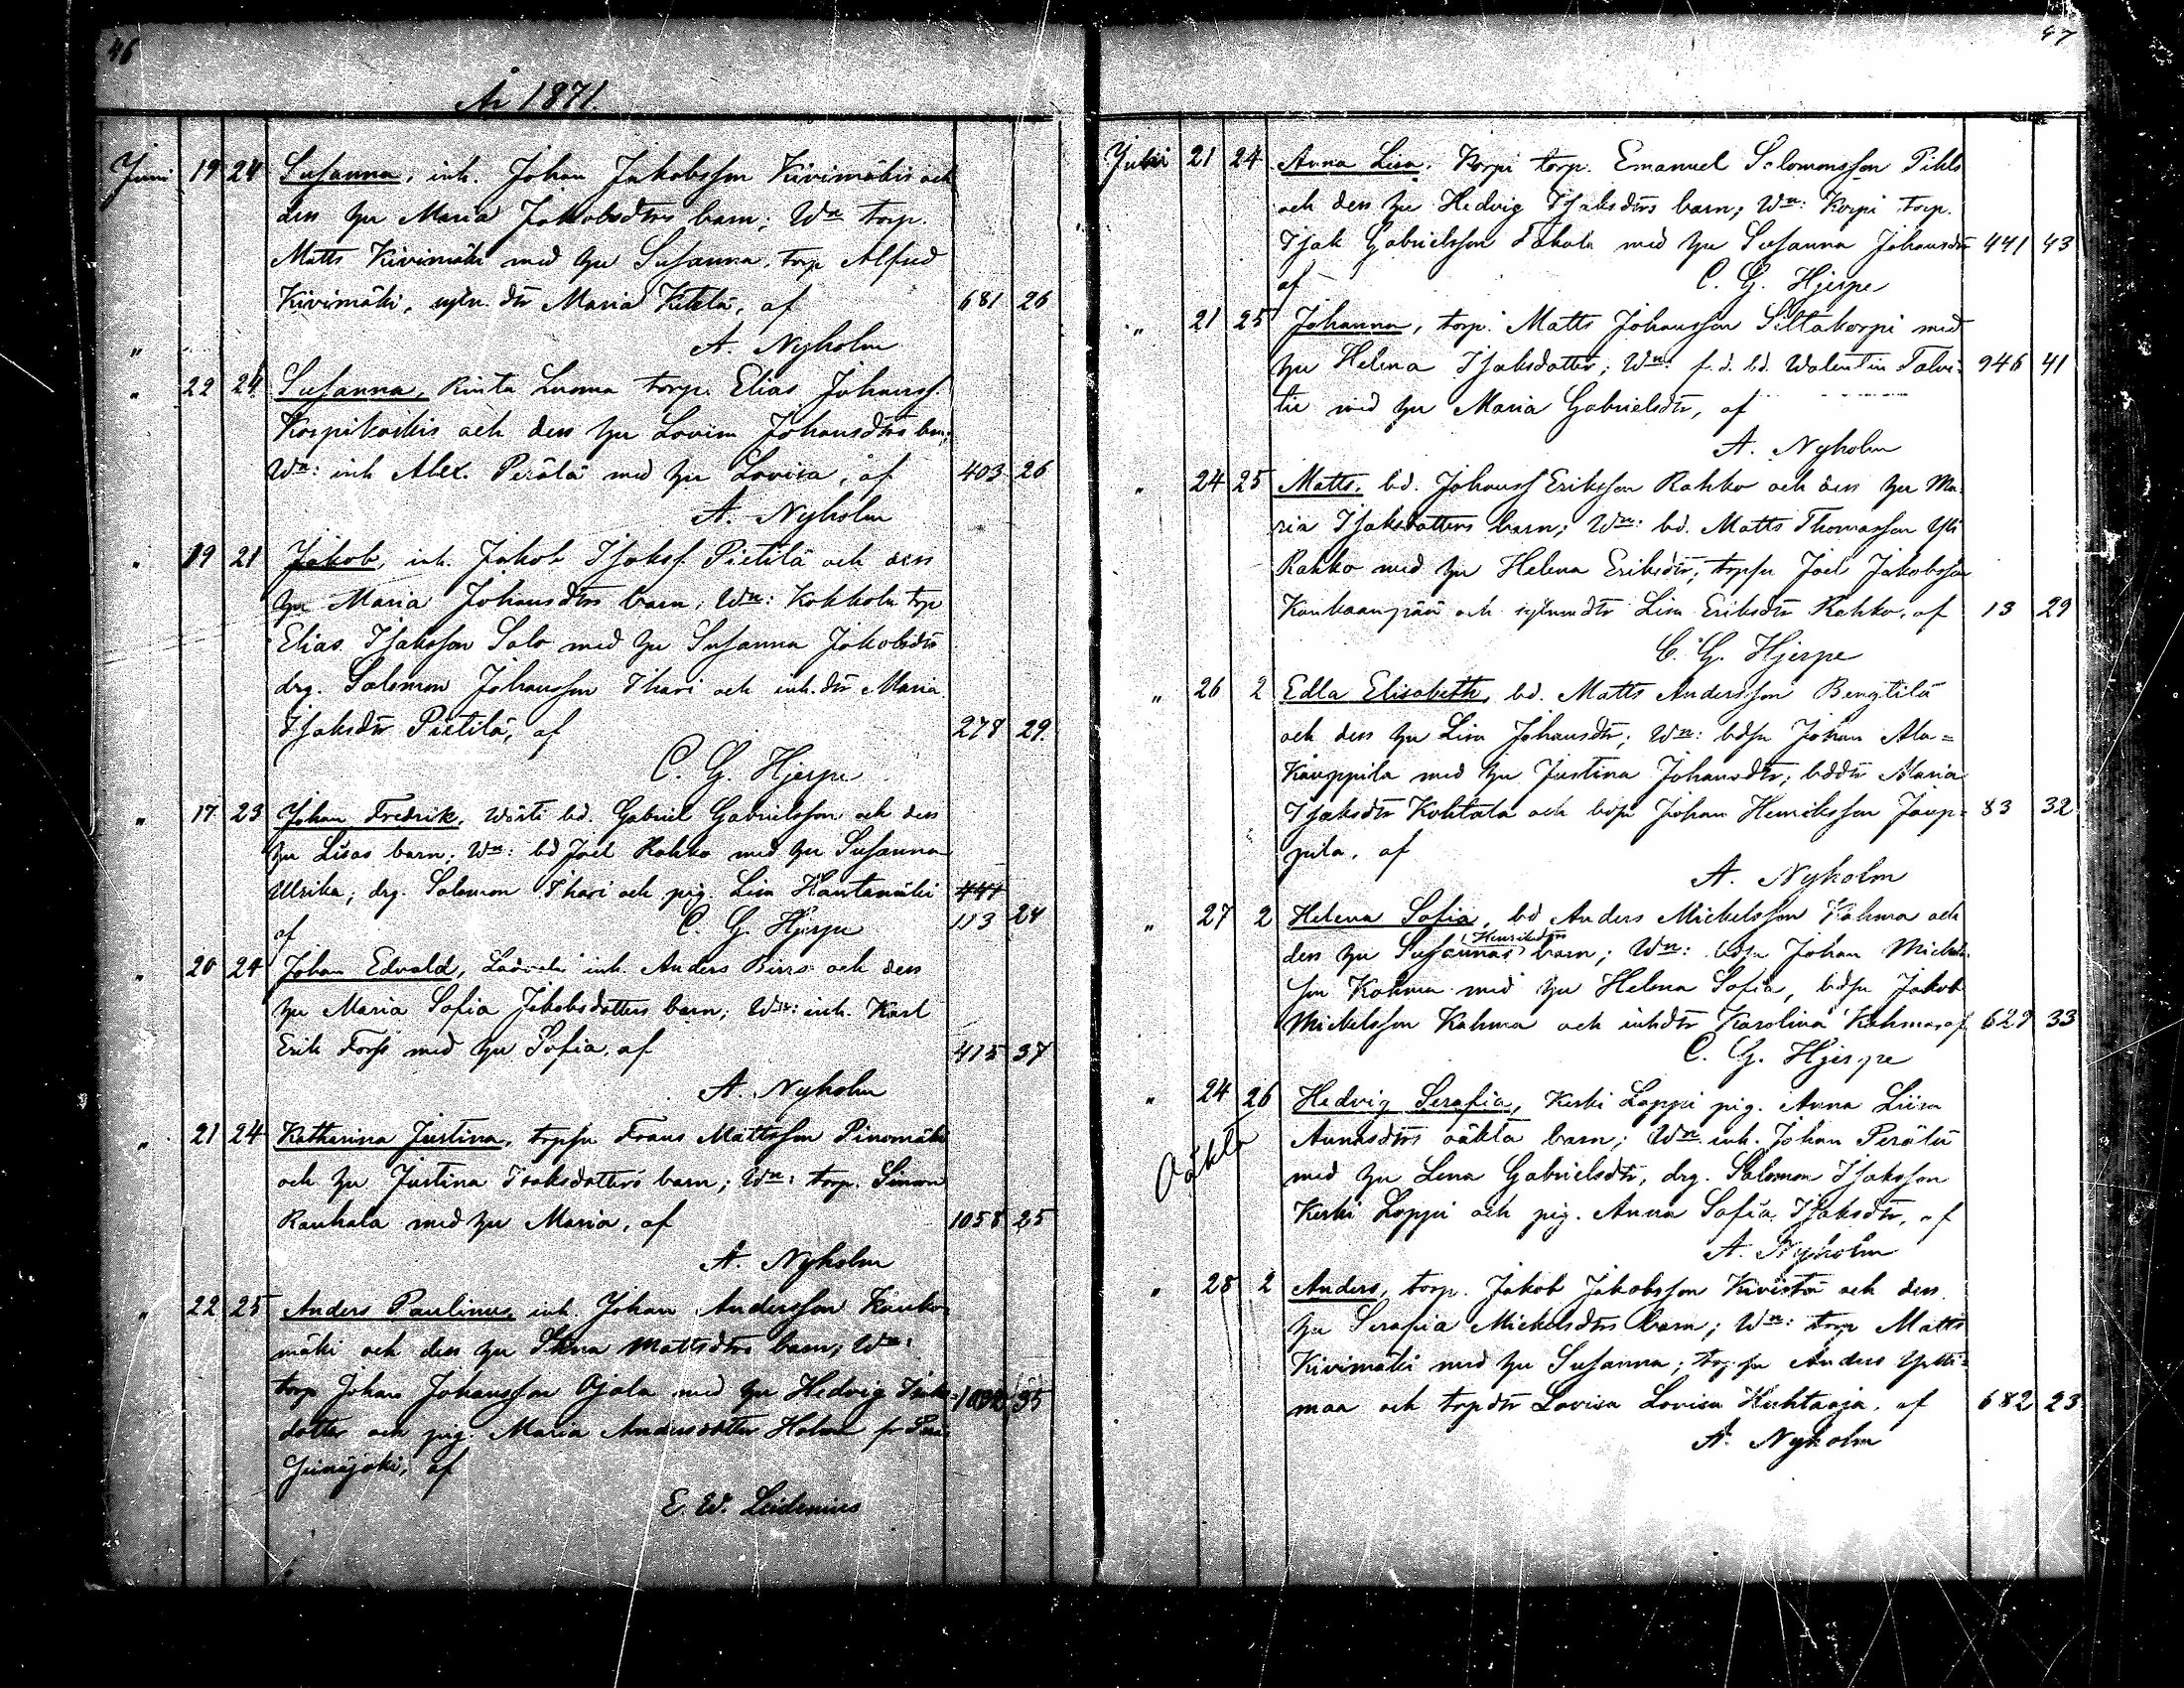 46
År 1871.
Juni 19 24 Susanna, inh. Johan Jakobsson Kivimäkis och
dess hu Maria Jakobsdtrs barn; Wn torp.
Matts Kivimäki med hu Susanna, torp Alfred
Kivimäki, dtr Maria Ketola, af 681 26
A. Nyholm
"
" 22 24 Susanna, Rinta Luoma torp. Elias Johanss.
Korpikoskis och dess hu Lovisa Johansdtrs barn;
Wn: inh Alex. Perälä med hu Lovisa, af 403 26
A. Nyholm
" 19 21 Jakob, inh. Jakob Isakss. Pietilä och dess
hu Maria Johansdtrs barn; Wn: Kokkola torp
Elias Isaksson Salo med hu Susanna Jakobsdtr
drg. Salomon Johansson Ihari och inh.dtr Maria
Isaksdtr Pietilä, af 278 29.
C. G. Hjerpe
" 17 23 Johan Fredrik, bd. Gabriel Gabrielsson och dess
hu Lisas barn; Wn: bd Joel Rahko med hu Susanna
Ulrika; drg. Salomon Ihari och pig. Lisa Hautamäki 441
af C. G. Hjerpe 113 24
" 20 24 Johan Edvald, inh. Anders Birros och dess
hu Maria Sofia Jakobsdotters barn; Wn: inh. Karl
Erik Forss med hu Sofia, af 415 37
A. Nyholm
" 21 24 Katharina Justina, torpsn Frans Mattsson Pinomäki
och hu Justina Isaksdotters barn; Wn: torp. Simon
Rauhala med hu Maria, af 1058 25
A. Nyholm
" 22 25 Anders Paulinus, inh. Johan Andersson Kauko-
mäki och dess hu Stina Mattsdtrs barn; Wn:
torp Johan Johansson Ojala med hu Hedvig Isaks- 35
dotter och pig. Maria Andersdotter Holm fr
af
E. W. Leidenius
47
Juni 21 24 Anna Lisa, Korpi torp. Emanuel Salomonsson
och dess hu Hedvig Isaksdtrs barn; Wn: Korpi torp.
Isak Gabrielsson med hu Susanna Johansdtr 441 43
af C. G. Hjerpe
" 21 25 Johanna, torp. Matts Johansson Siltakorpi med
hu Helena Isaksdotter; Wn: f.d. bd. Walentin Talvi- 946 41
tie med hu Maria Gabrielsdtr, af
A. Nyholm
" 24 25 Matts, bd. Johanss Eriksson Rahko och dess hu Ma-
ria Isaksdotters barn; Wn: bd. Matts Thomasson Yli
Rahko med hu Helena Eriksdtr; torpsn Joel Jakobsson
Kankaanpää och Lisa Eriksdtr Rahko, af 13 29
C. G. Hjerpe
" 26 2 Edla Elisabeth, bd. Matts Andersson Bengtilä
och dess hu Lisa Johansdtr; Wn: bdsn Johan Ala=
Kauppila med hu Justina Johansdtr; bddtr Maria
Isaksdtr Kohtala och bdsn Johan Henriksson Jaup= 83 32
pila, af
A. Nyholm
" 27 2 Helena Sofia, bd Anders Mickelsson Kahma och
dess hu Susannas Henriksdtrs barn; Wn: bdsn Johan Mickels-
son Kahma med hu Helena Sofia, bdsn Jakob
Mickelsson Kahma och inhdtr Karolina Kahma, af 629 33
C. G. Hjerpe
" 24 26 Hedvig Serafia, Keski Loppi pig. Anna Lisa
Oäkta Annasdtrs oäkta barn; Wn inh. Johan Perälä
med hu Lena Gabrielsdtr, drg. Salomon Isaksson
Keski Loppi och pig. Anna Sofia Isaksdtr, af
A. Nyholm
" 28 2 Anders, torp. Jakob Jakobsson Kivistö och dess
hu Serafia Mickelsdtrs barn; Wn: torp Matts
Kivimäki med hu Susanna; torpsn Anders
maa och torpdtr Lovisa Lovisa Huhtaoja, af 682 23
A. Nyholm